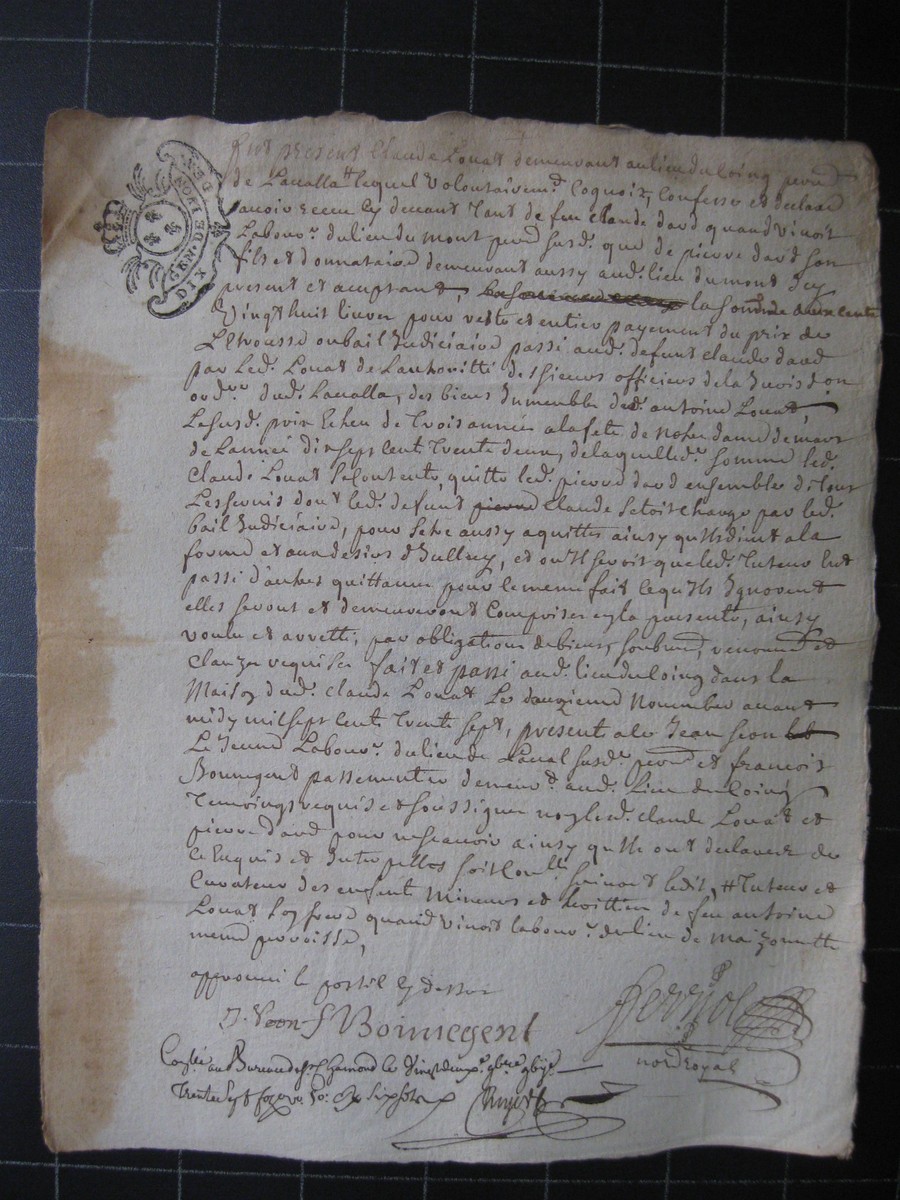 GEN. DE
MOY. PAP.
DIX DEN.
Fut présent Claude Louat demeurant au lieu du Coing parr.
de Laualla lequel volontairem.t Cognoit, Confesse et declare
auoir receu cy deuant tant de feu claude dard quand viuoit
Labour.r du lieu du mont parr. susd. que de pierre dard son
fils et donnataire demeurant aussy aud. lieu du mont Icy
present et aceptant, la somme de deux cents
Vingt huit liures pour reste et entier payement du prix de
Lestrousse ou bail Judiciaire passé aud. defunt claude dard
par led. Louat de Lauthoritté des sieurs officiers de la Jurisd.on
ord.re dud. Laualla, des biens Immeubles de d. antoine Louat,
Lesusd. prix Echeu de Trois années a la fete de notre dame de mars
de Lannée dix sept cent Trente deux, de laquelle d. somme led.
Claude Louat se Contente, quitte led. pierre dard ensemble de tous
Les seruis dont led. defunt pierre Claude setoit chargé par led.
bail Judiciaire, pour Setre aussy aquittés ainsy quils dient a la
forme et aux desirs d'Icelluy, et ou Il seroit que led. Tuteur eut
passé d'autres quittances pour le meme fait lequ'ils Ignorent
elles seront et demeureront Comprises en la presente, ainsy
voulu et arretté, par obligations de biens, soubmis, renonc. et
Clauzes requises fait et passé aud. lieu du Coing dans la
Maison dud. Claude Louat Le douzieme Nouembre auant
midy mil sept cent Trente sept, presents a ce Jean
Le Jeune Labour.r du lieu de Laual susd. parr. et francois
Bonniegent passementier demeur.t aud. Lieu du Coing
Temoings requis et soussignes non led. Claude Louat et
pierre dard pour ne scauoir ainsy quils ont declarés de
ce Enquis et Interpellés soit Con.llé suiuant ledit, # Tuteur et
Curateur des enfants Mineurs et heritiers de feu antoine
Louat son frere quand viuoit labour.r du lieu de
meme parroisse,
approuué le postil cy dessus
J. F Bonniegent
not. royal
Con.llé au Bureau de S.t Chamond le Vingt deux 9bre
Trente Sept six sols